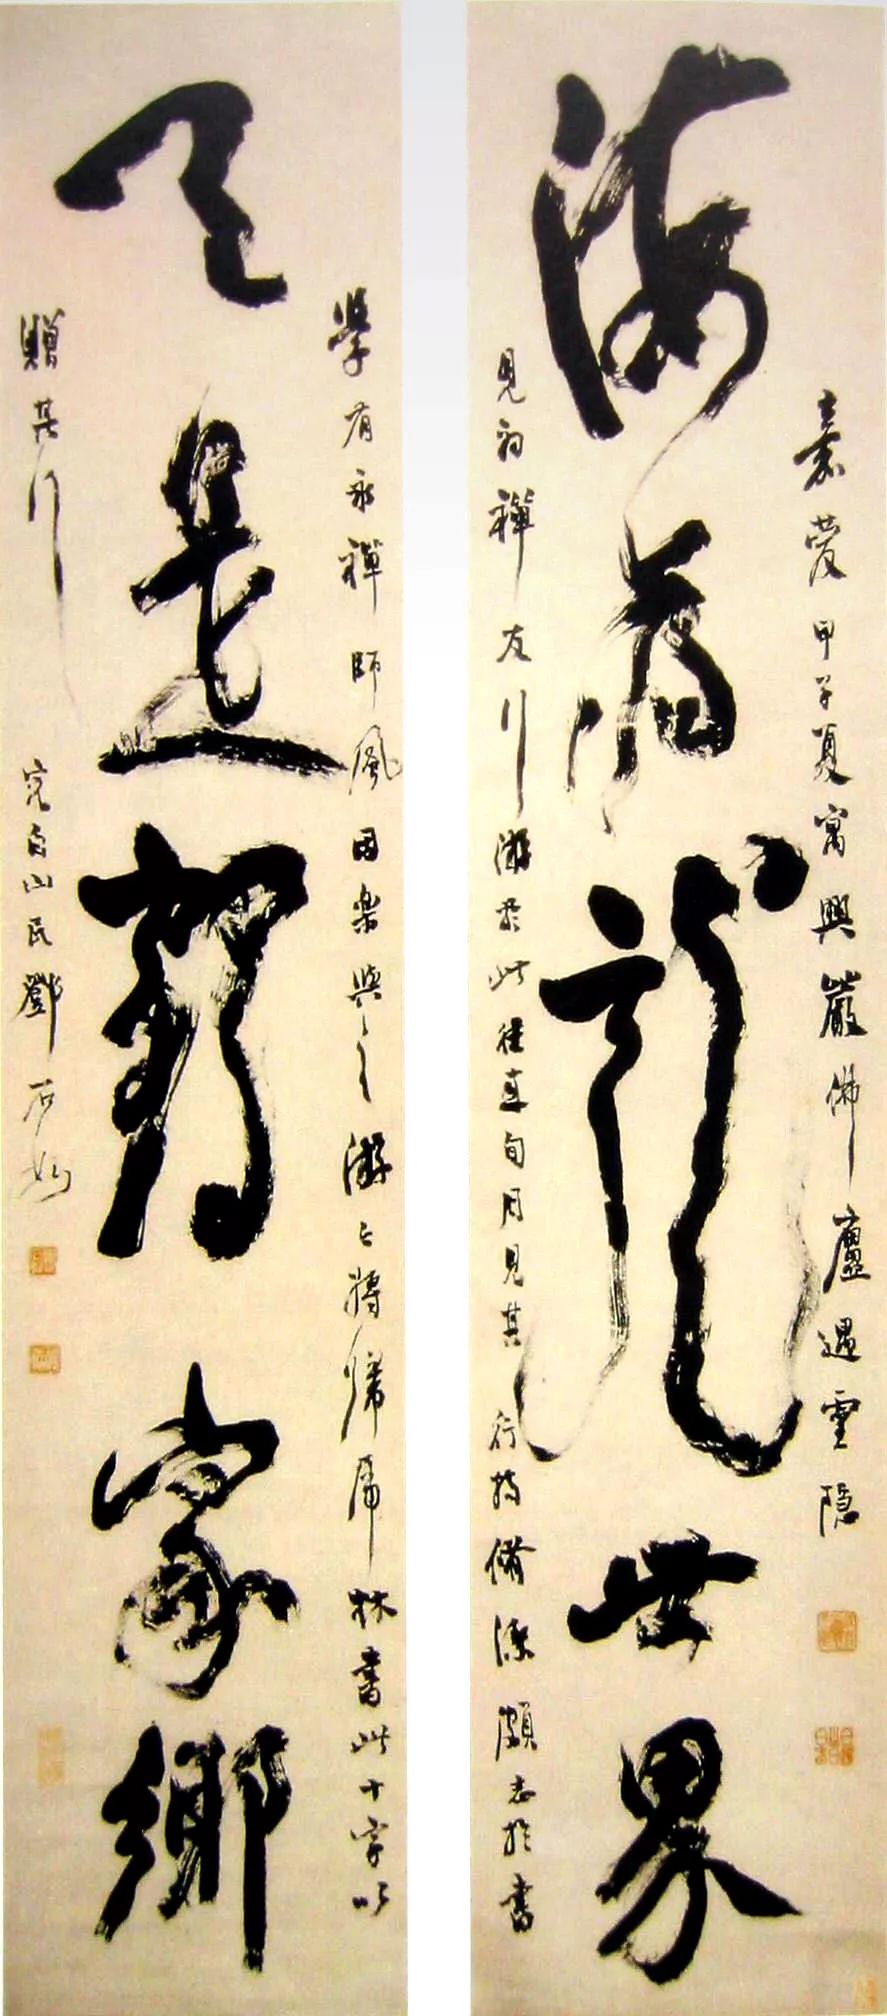 嘉慶甲子夏寓興巖佛廬遇雲隱
海為龍世界
見初禪友行游於此旬月見其行持脩潔頗志於書
學有永禪師風因樂與之游將歸林書此十字以
天是鶴家鄉
贈其行 完白山民鄧石如